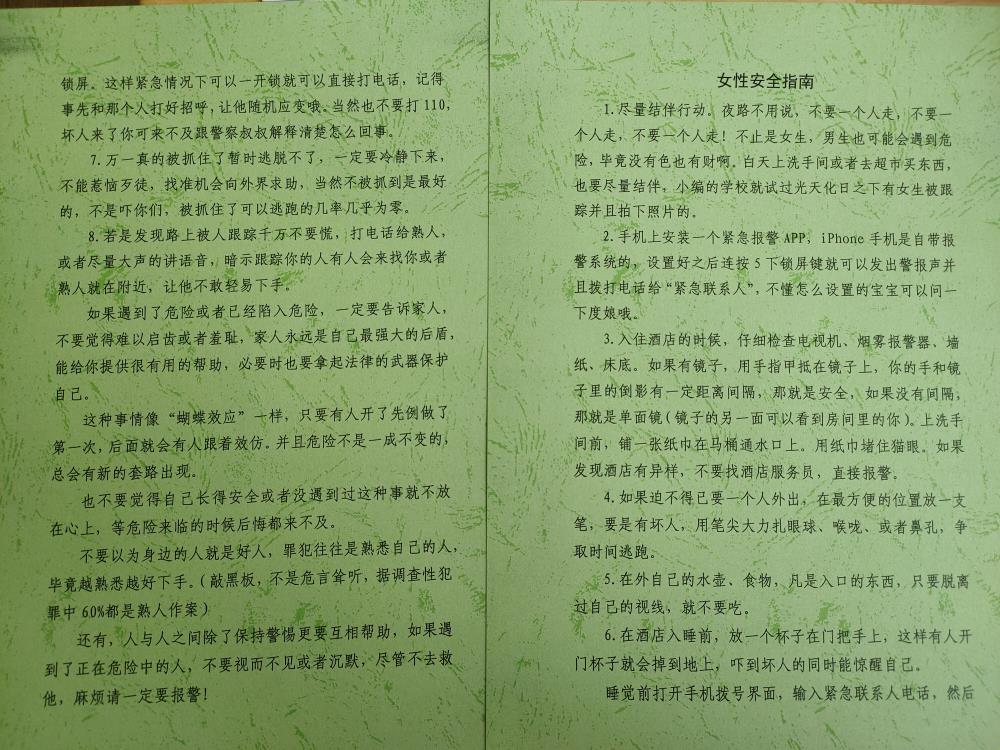 女性安全指南
1.尽量结伴行动。夜路不用说，不要一个人走，不要一
个人走，不要一个人走！不止是女生，男生也可能会遇到危
险，毕竟没有色也有财啊。白天上洗手间或者去超市买东西，
也要尽量结伴，小编的学校就试过光天化日之下有女生被跟
踪并且拍下照片的。
2.手机上安装一个紧急报警 APP，iPhone 手机是自带报
警系统的，设置好之后连按 5 下锁屏键就可以发出警报声并
且拨打电话给“紧急联系人”，不懂怎么设置的宝宝可以问一
下度娘哦。
3.入住酒店的时候，仔细检查电视机、烟雾报警器、墙
纸、床底。如果有镜子，用手指甲抵在镜子上，你的手和镜
子里的倒影有一定距离间隔，那就是安全，如果没有间隔，
那就是单面镜（镜子的另一面可以看到房间里的你）。上洗手
间前，铺一张纸巾在马桶通水口上。用纸巾堵住猫眼。如果
发现酒店有异样，不要找酒店服务员，直接报警。
4.如果迫不得已要一个人外出，在最方便的位置放一支
笔，要是有坏人，用笔尖大力扎眼球、喉咙、或者鼻孔，争
取时间逃跑。
5.在外自己的水壶、食物，凡是入口的东西，只要脱离
过自己的视线，就不要吃。
6.在酒店入睡前，放一个杯子在门把手上，这样有人开
门杯子就会掉到地上，吓到坏人的同时能惊醒自己。
睡觉前打开手机拨号界面，输入紧急联系人电话，然后
锁屏。这样紧急情况下可以一开锁就可以直接打电话，记得
事先和那个人打好招呼，让他随机应变哦。当然也不要打 110，
坏人来了你可来不及跟警察叔叔解释清楚怎么回事。
7.万一真的被抓住了暂时逃脱不了，一定要冷静下来，
不能惹恼歹徒，找准机会向外界求助，当然不被抓到是最好
的，不是吓你们，被抓住了可以逃跑的几率几乎为零。
8.若是发现路上被人跟踪千万不要慌，打电话给熟人，
或者尽量大声的讲语音，暗示跟踪你的人有人会来找你或者
熟人就在附近，让他不敢轻易下手。
如果遇到了危险或者已经陷入危险，一定要告诉家人，
不要觉得难以启齿或者羞耻，家人永远是自己最强大的后盾，
能给你提供很有用的帮助，必要时也要拿起法律的武器保护
自己。
这种事情像“蝴蝶效应”一样，只要有人开了先例做了
第一次，后面就会有人跟着效仿。并且危险不是一成不变的，
总会有新的套路出现。
也不要觉得自己长得安全或者没遇到过这种事就不放
在心上，等危险来临的时候后悔都来不及。
不要以为身边的人就是好人，罪犯往往是熟悉自己的人，
毕竟越熟悉越好下手。（敲黑板，不是危言耸听，据调查性犯
罪中 60%都是熟人作案）
还有，人与人之间除了保持警惕更要互相帮助，如果遇
到了正在危险中的人，不要视而不见或者沉默，尽管不去救
他，麻烦请一定要报警！